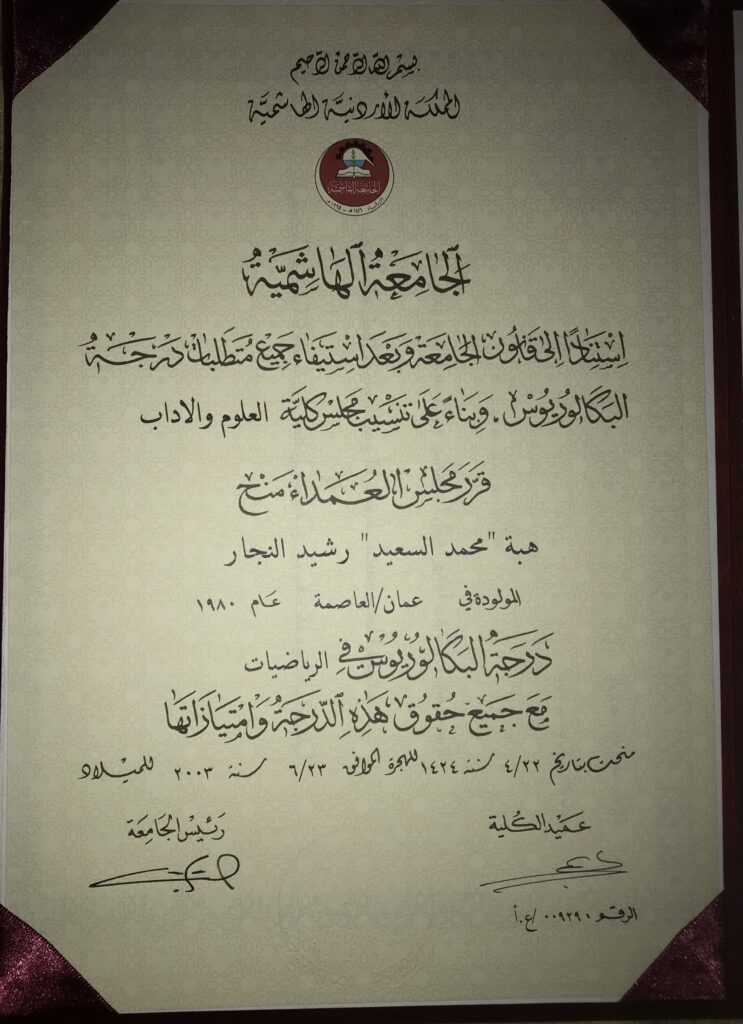 بسم الله الرحمن الرحيم
المملكة الأردنية الهاشمية
الجامعة الهاشمية
الجَامِعَةُ الهَاشِمِيَّةُ
اسْتِنَادًا إلى قَانُون الجامعَة وبَعْدَ اسْتِيفَاء جَمِيع مُتَطلبات دَرَجَةُ
البَكَالُورْيُوسْ . وَبنَاءً عَلَى تَنْسِيْب مَجْلس كُليَّة العلوم والاداب
قَرَّرَ مَجلِس العُمَدَاء مَنْح
هبة "محمد السعيد" رشيد النجار
المولودة في عمان/العاصمة عَام ١٩٨٠
دَرَجَةُ البَكَالُورْيُوسْ في الرياضيات
مَعَ جَمِيع حُقُوق هَذِهِ الدَّرجَةُ وَامْتِيَازَاتهَا
منحت بتاريخ ٤/٢٢ سنة ١٤٢٤ للهجرة الموافق ٦/٢٣ سنة ٢٠٠٣ للميلاد
عَميْد الكُلية
رَئيْس الجَامِعَة
الرقم ٠٠٩٢٩٠ /ع.أ